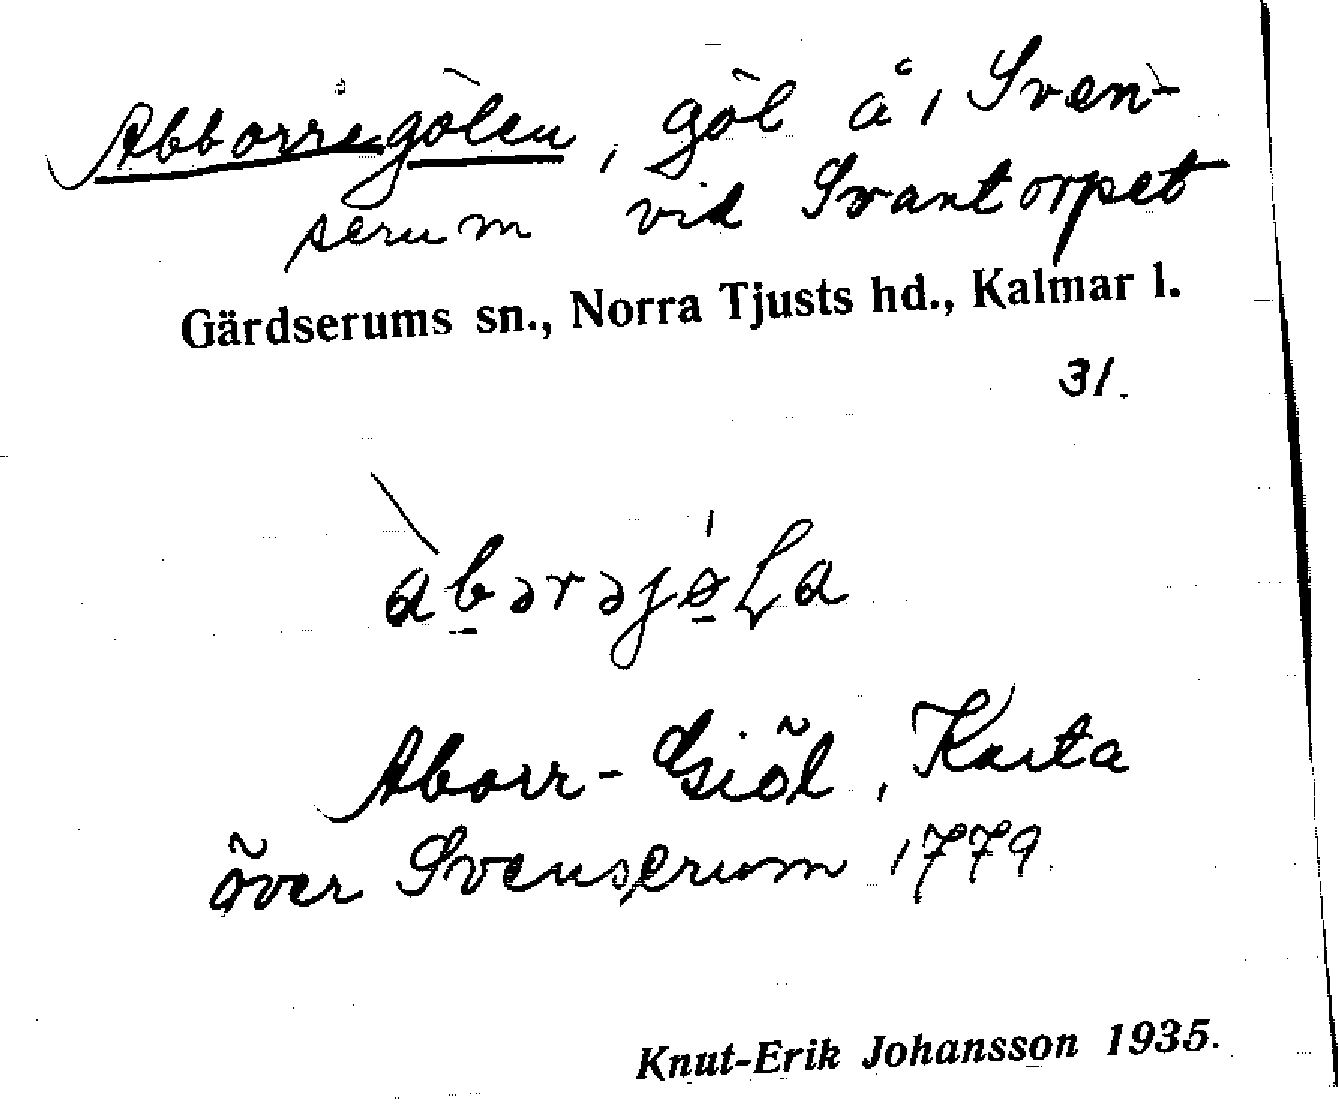 Abborregölen, göl å, Sven-
serum vid Svantorpet
Gärdserums sn., Norra Tjusts hd., Kalmar l.
31.
àbərəjǿLa
Aborr-Giöl, Karta
över Svenserum 1779.
Knut-Erik Johansson 1935.